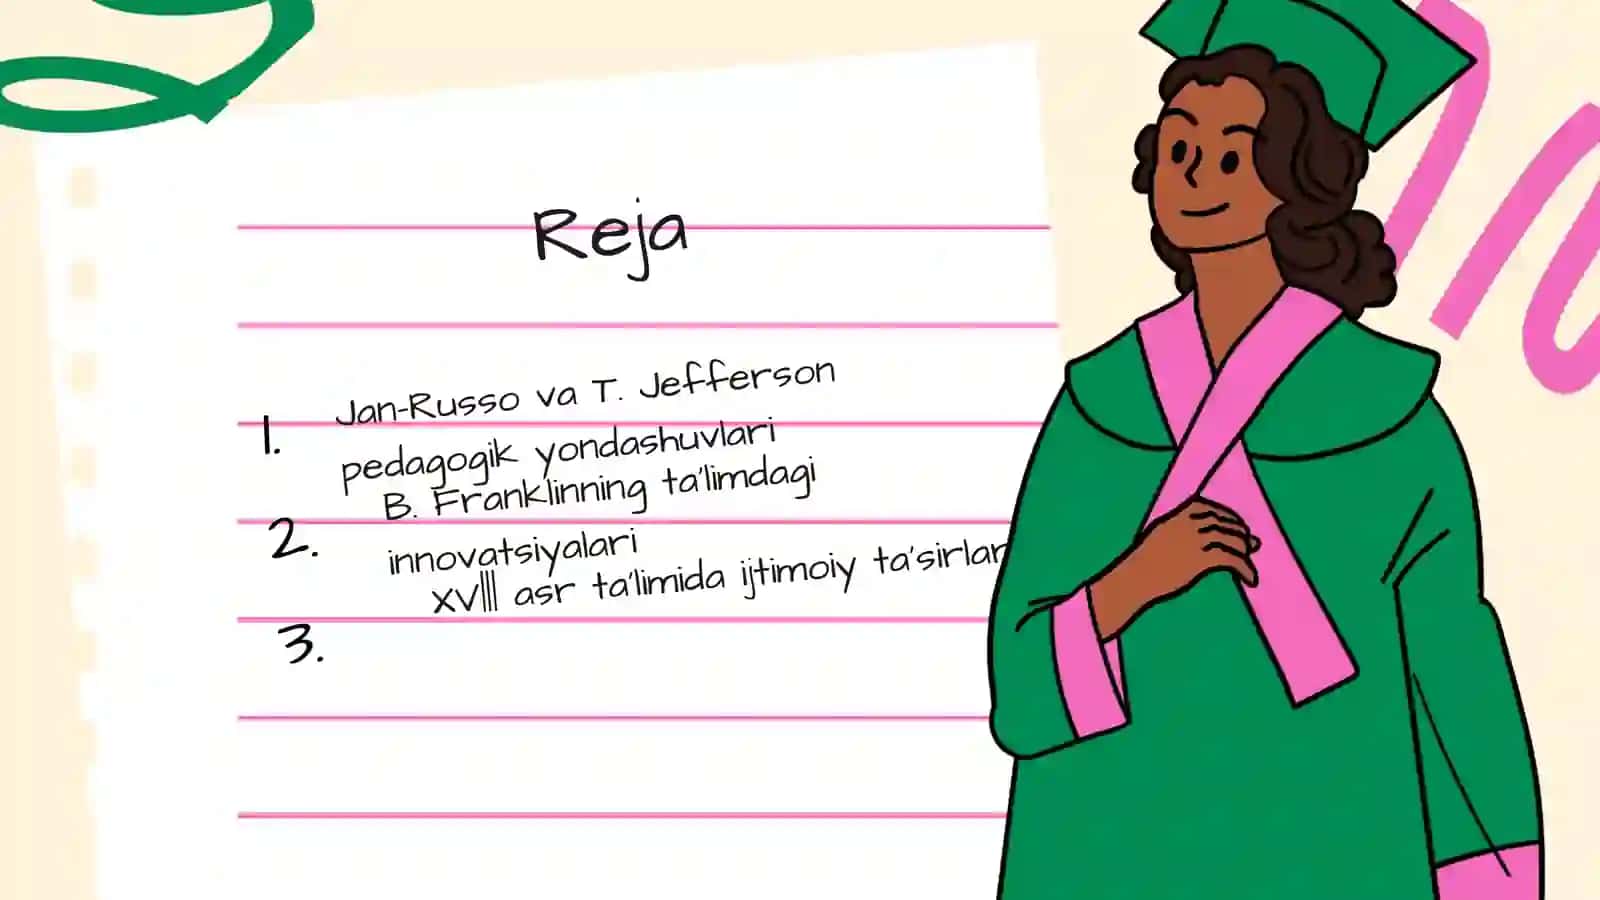 Reja
1. Jan-Russo va T. Jefferson
pedagogik yondashuvlari
2. B. Franklinning ta'limdagi
innovatsiyalari
3. XVlll asr ta'limida ijtimoiy ta'sirlar